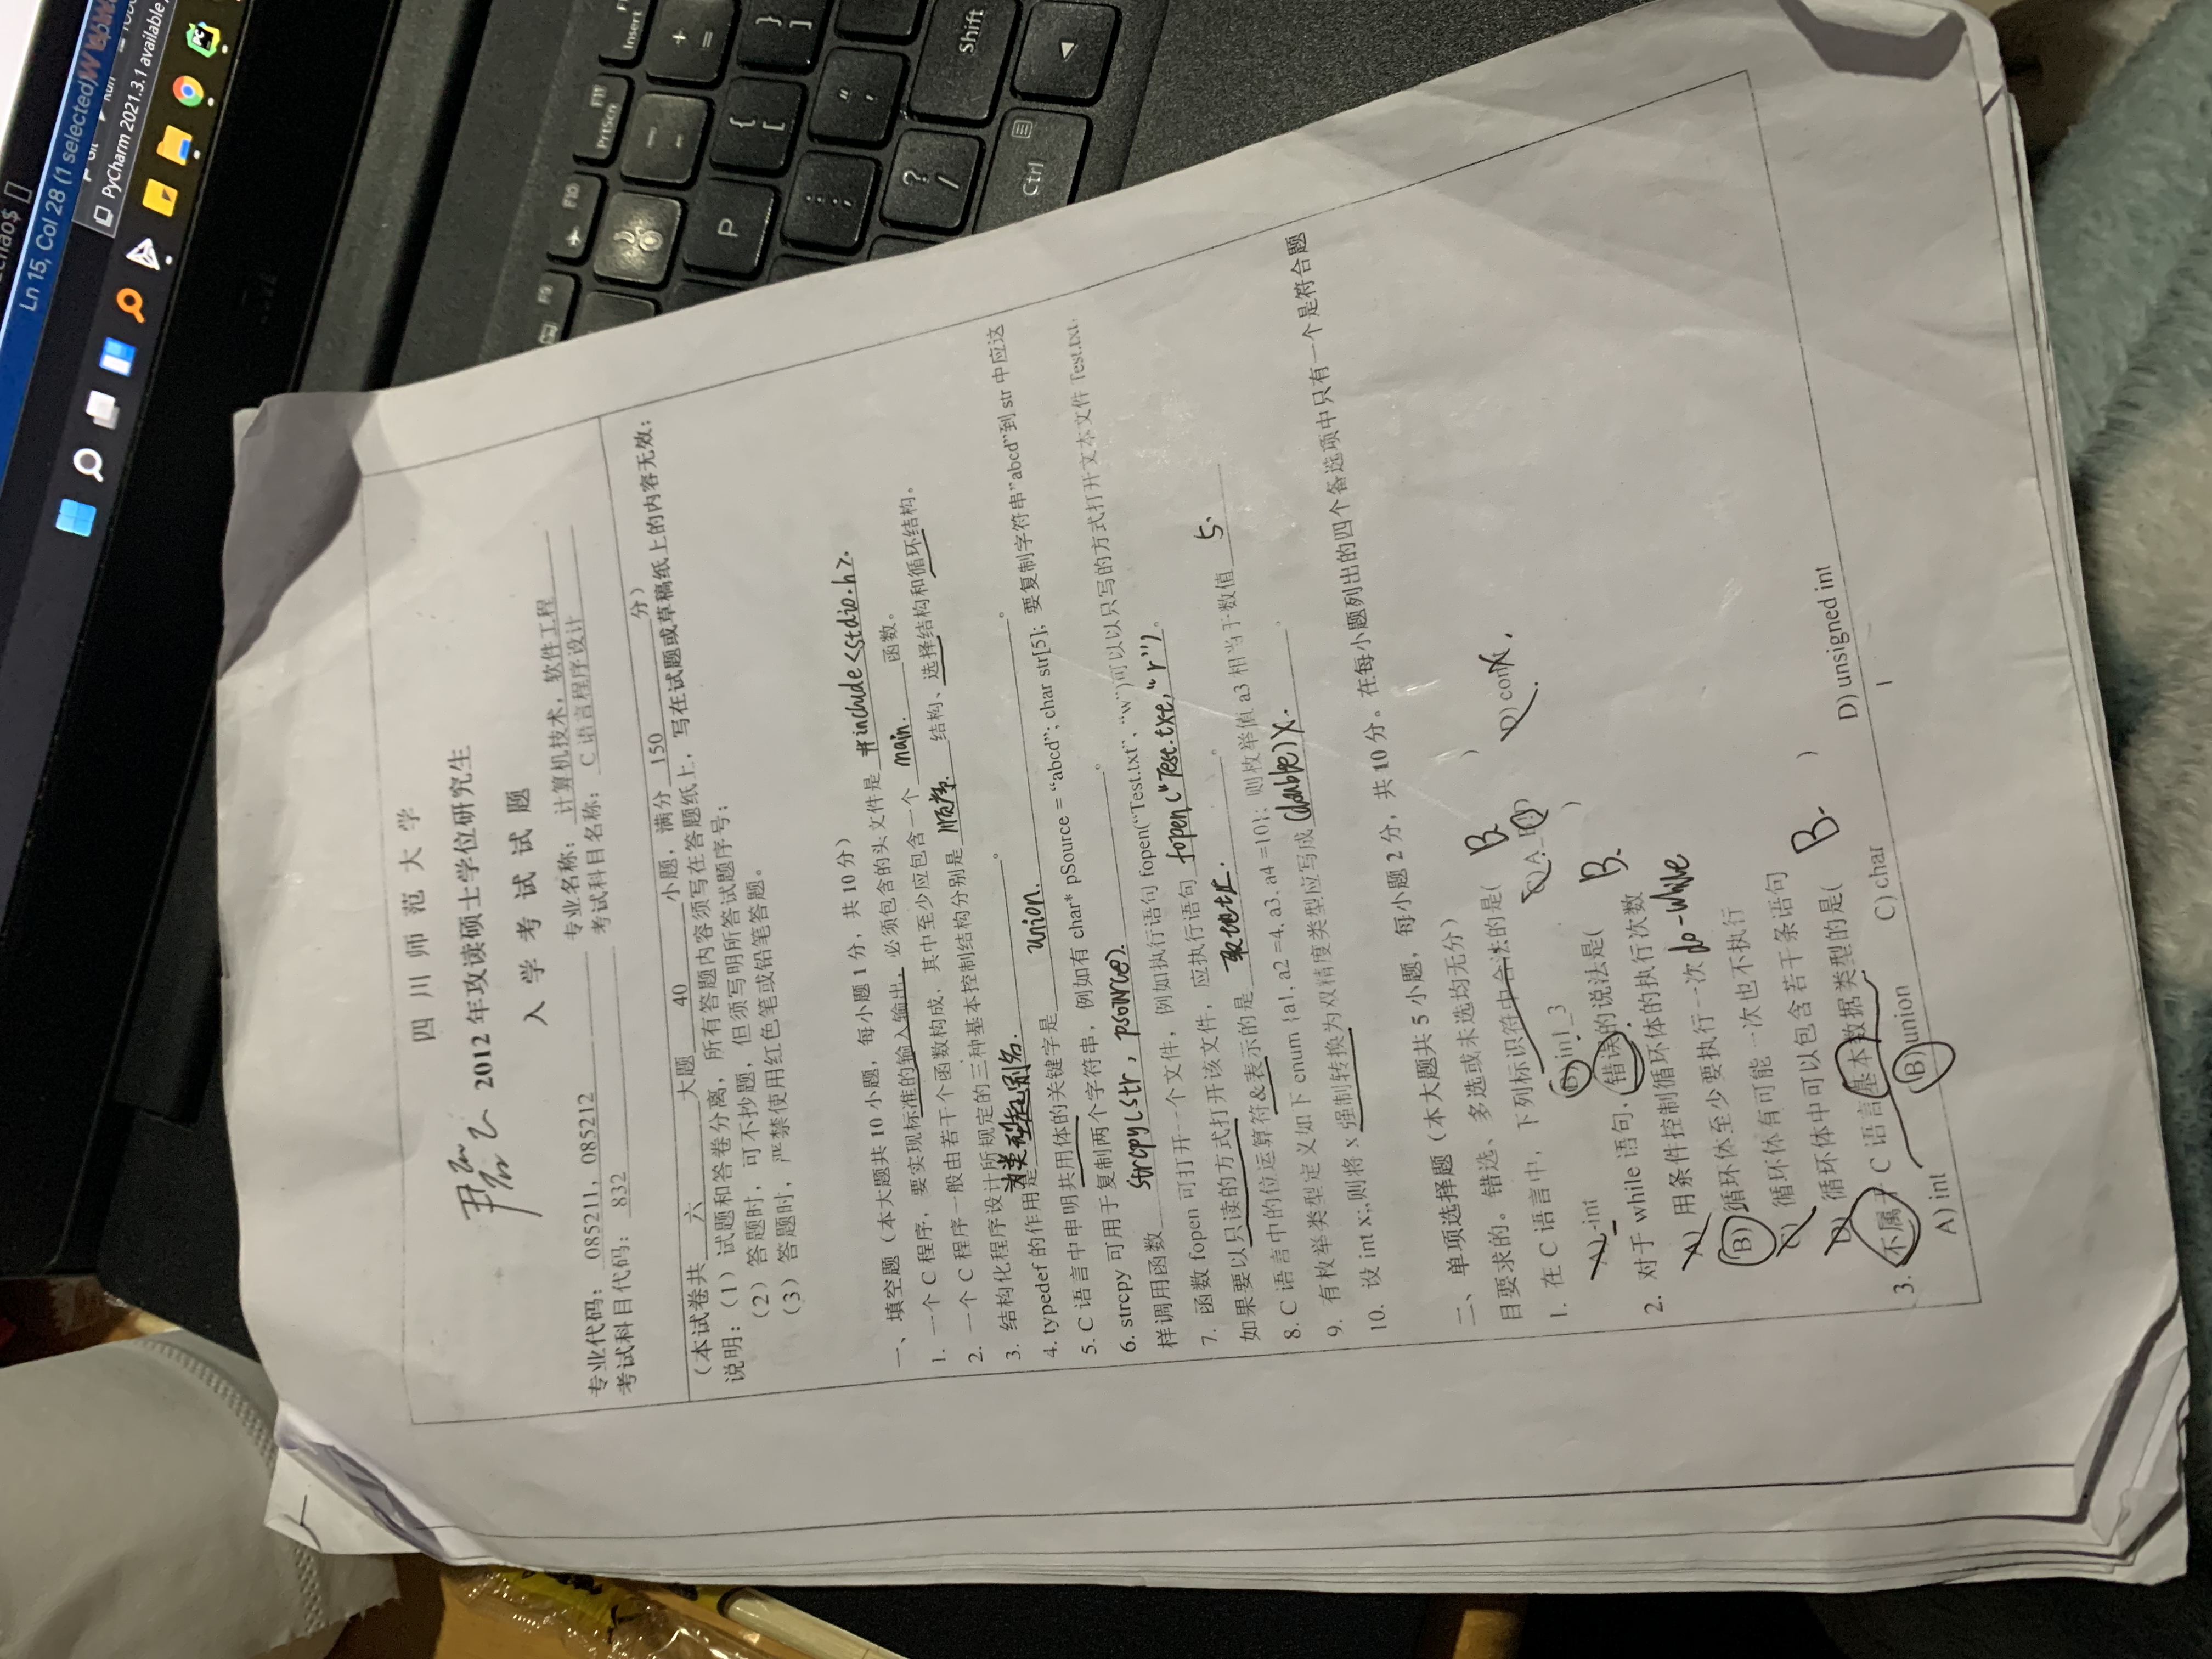 chao$
Ln 15, Col 28 (1 selected)
PyCharm 2021.3.1 available
四川师范大学
2012 年攻读硕士学位研究生
入学考试试题
专业代码： 085211，085212 专业名称： 计算机技术，软件工程
考试科目代码： 832 考试科目名称： C 语言程序设计
（本试卷共 六 大题 40 小题，满分 150 分）
说明：（1）试题和答卷分离，所有答题内容须写在答题纸上，写在试题或草稿纸上的内容无效；
（2）答题时，可不抄题，但须写明所答试题序号；
（3）答题时，严禁使用红色笔或铅笔答题。
一、填空题（本大题共 10 小题，每小题 1 分，共 10 分）
1. 一个 C 程序，要实现标准的输入输出，必须包含的头文件是 #include<stdio.h>.
2. 一个 C 程序一般由若干个函数构成，其中至少应包含一个 main. 函数。
3. 结构化程序设计所规定的三种基本控制结构分别是 顺序. 结构、选择结构和循环结构。
4. typedef 的作用是 为类型起别名. 。
5. C 语言中申明共用体的关键字是 union. 。
6. strcpy 可用于复制两个字符串，例如有 char* pSource = “abcd”; char str[5]; 要复制字符串”abcd”到 str 中应这
样调用函数 strcpy(str, psource). 。
7. 函数 fopen 可打开一个文件，例如执行语句 fopen(“Test.txt”, “w”)可以以只写的方式打开文本文件 Test.txt，
如果要以只读的方式打开该文件，应执行语句 fopen("Test.txt,"r") 。
8. C 语言中的位运算符&表示的是 取地址. 。
9. 有枚举类型定义如下 enum {a1, a2 =4, a3, a4 =10}; 则枚举值 a3 相当于数值 5.
10. 设 int x;,则将 x 强制转换为双精度类型应写成 (double)x. 。
二、单项选择题（本大题共 5 小题，每小题 2 分，共 10 分。在每小题列出的四个备选项中只有一个是符合题
目要求的。错选、多选或未选均无分）
1. 在 C 语言中，下列标识符中合法的是( B )
A) -int B) in1_3 D)
2. 对于 while 语句，错误的说法是( B. )
A) 用条件控制循环体的执行次数
B) 循环体至少要执行一次 do-while
C) 循环体有可能一次也不执行
D) 循环体中可以包含若干条语句
3. 不属于 C 语言基本数据类型的是( B. )
A) int B) union C) char D) unsigned int
1
F9
F10
PrtScn
F11
Insert
P
Shift
Ctrl